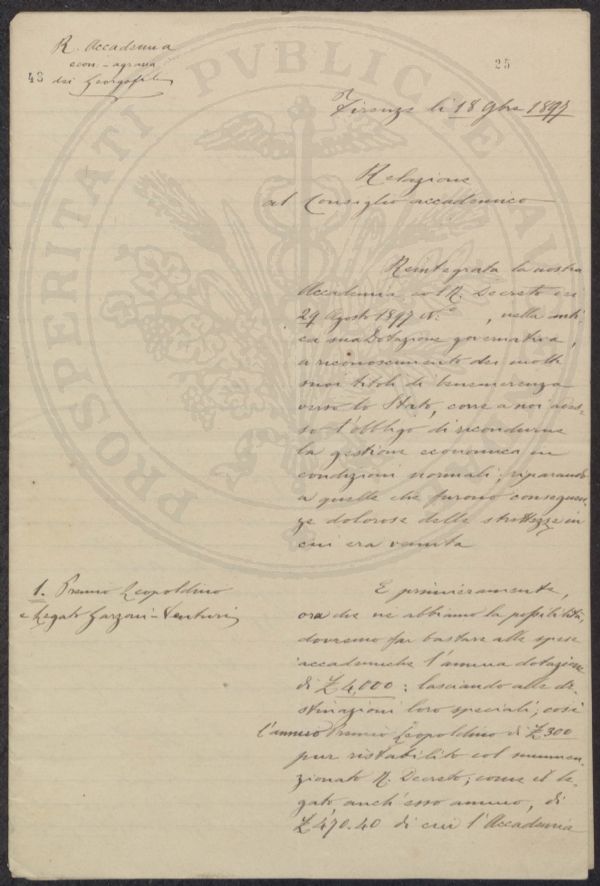 R. Accademia
econ-agraria
43 dei Georgofili
25
Firenze li 18 9bre 1897
Relazione
al Consiglio accademico
Reintegrata la nostra
Accademia, col R. Decreto del
29 Agosto 1897 N.° , nella anti-
ca sua Dotazione governativa,
a riconoscimento dei molti
suoi titoli di benemerenza
verso lo Stato, corre a noi ades-
so l'obbligo di ricondurne
la gestione economica in
condizioni normali, riparando
a quelle che furono conseguen-
ze dolorose delle strettezze in
cui era venuta
1. Premio Leopoldino
e Legato Garzoni-Venturi
E primieramente,
ora che ne abbiamo la possibilità,
dovremo far bastare alle spese
accademiche l'annua dotazione
di £ 4,000: lasciando alle de-
stinazioni loro speciali, così
l'annuo Premio Leopoldino di £ 300
pur ristabilito col summen-
zionato R. Decreto; come il le-
gato, anch'esso annuo, di
£ 470.40 di cui l'Accademia
PROSPERITATI PUBLICAE AU